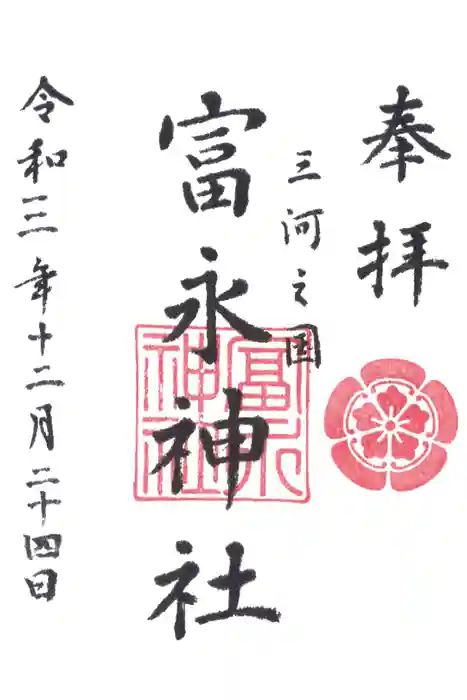 奉拝
三河之国
富永神社
富永
神社
令和三年十二月二十四日